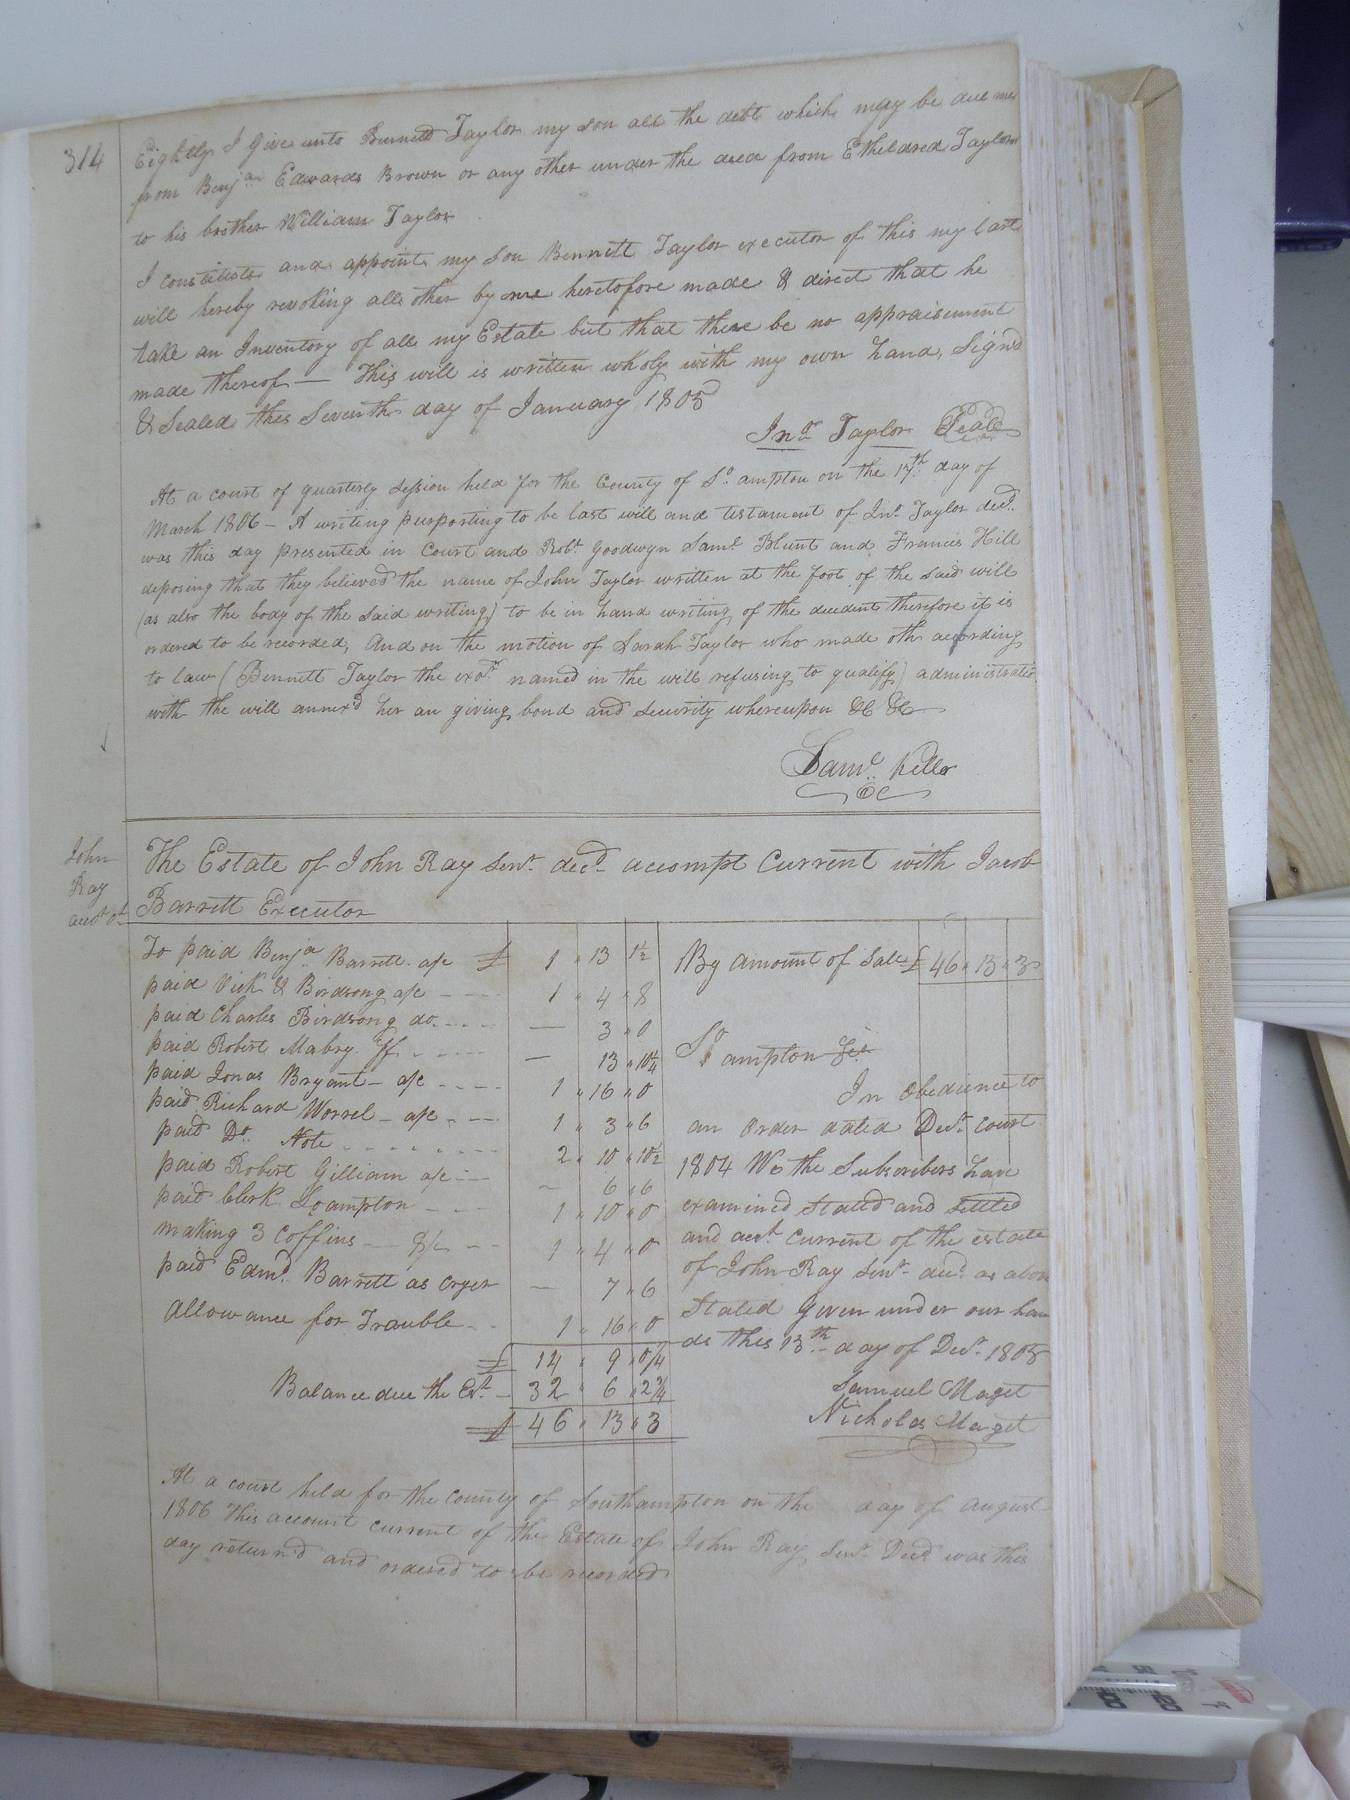 314
Eightly I give unto Bennett Taylor my son all the debt which may be due me
from Benjan Edwards Brown or any other under the deed from Etheldred Taylor
to his brother William Taylor
I constitute and appoint my son Bennett Taylor executor of this my last
will hereby revoking all other by me heretofore made & direct that he
take an Inventory of all my Estate but that there be no appraisement
made thereof — This will is written wholy with my own hand, Sign'd
& Sealed this Seventh day of January 1805
Jno Taylor Seal
At a court of quarterly Session held for the County of So ampton on the 17th day of
March 1806 — A writing purporting to be last will and testament of Jno Taylor decd
was this day presented in Court and Robt Goodwyn Saml Blunt and Francis Hill
deposing that they believed the name of John Taylor written at the foot of the said will
(as also the body of the said writing) to be in hand writing of the decedent therefore it is
ordered to be recorded, And on the motion of Sarah Taylor who made oth according
to law (Bennett Taylor the exor named in the will refusing to qualify) administratio
with the will annex'd her an giving bond and security whereupon &c &c
Saml Kello
CC
John
Ray
acct Ct
The Estate of John Ray Senr decd accompt Current with Jacob
Barrett Executor
To paid Benja Barrett a/c £ 1 " 13 1½
paid Vick & Birdsong a/c 1 " 4 " 8
paid Charles Birdsong do — 3 " 0
paid Robert Mabry — 13 " 10¼
paid Jonas Bryant — a/c 1 " 16 " 0
paid Richard Worrel — a/c 1 " 3 " 6
paid Do Note 2 " 10 " 10½
paid Robert Gilliam a/c — 6 " 6
paid Clerk Soampton 1 " 10 " 0
making 3 Coffins 1 " 4 " 0
paid Edmd Barrett as cryer — 7 " 6
Allowance for Trauble 1 " 16 " 0
£ 14 " 9 " 0¼
Balance due the Est 32 " 6 " 2¾
£ 46 " 13 " 3
By amount of Sale £ 46 " 13 " 3
So ampton Sct
In obedience to
an Order dated Decr Court
1804 We the Subscribers have
examined Stated and settled
and acct Current of the estate
of John Ray Senr decd as above
Stated Given under our han
ds this 13th day of Decr 1805
Samuel Maget
Nicholas Maget
At a court held for the County of Southampton on the day of August
1806 This account current of the Estate of John Ray Senr Decd was this
day return'd and ordered to be recorded